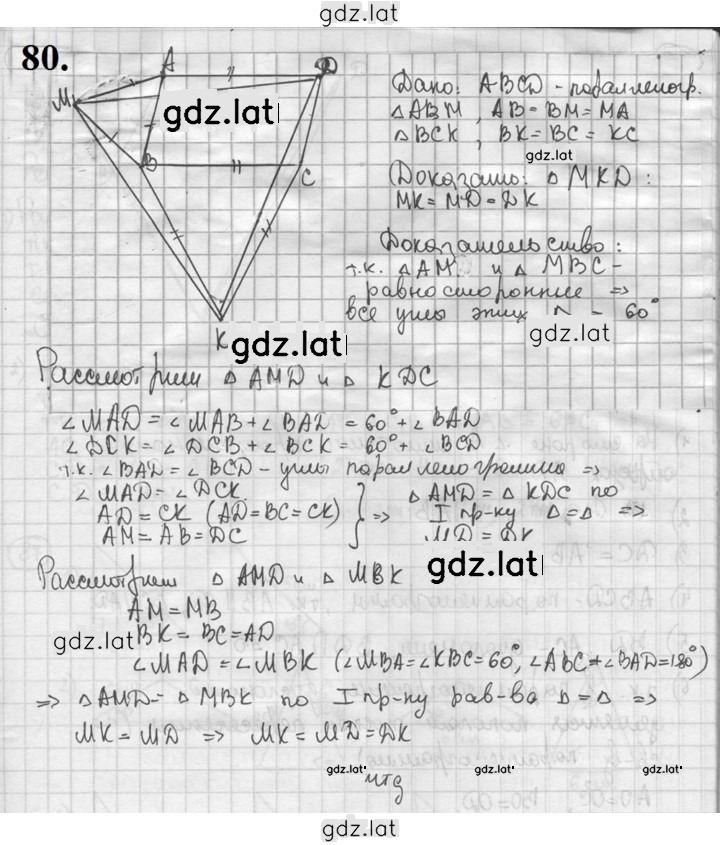 gdz.lat
80.
A
D
M
gdz.lat
B
C
K
gdz.lat
Дано: ABCD - параллелогр.
△ABM, AB = BM = MA
△BCK, BK = BC = KC
gdz.lat
Доказать: △MKD:
MK = MD = DK
Доказательство:
т.к. △AM и △MBC -
равносторонние ⇒
все углы этих △ - 60°
gdz.lat
Рассмотрим △AMD и △KDC
∠MAD = ∠MAB + ∠BAD = 60° + ∠BAD
∠DCK = ∠DCB + ∠BCK = 60° + ∠BCD
т.к. ∠BAD = ∠BCD - углы параллелограмма ⇒
∠MAD = ∠DCK
AD = CK (AD = BC = CK)
AM = AB = DC
} ⇒
△AMD = △KDC по
I пр-ку △=△ ⇒
MD = DK
gdz.lat
Рассмотрим △AMD и △MBK
AM = MB
gdz.lat BK = BC = AD
∠MAD = ∠MBK (∠MBA = ∠KBC = 60°, ∠ABC + ∠BAD = 180°)
⇒ △AMD = △MBK по I пр-ку рав-ва △=△ ⇒
MK = MD ⇒ MK = MD = DK
gdz.lat gdz.lat gdz.lat
чтд
gdz.lat